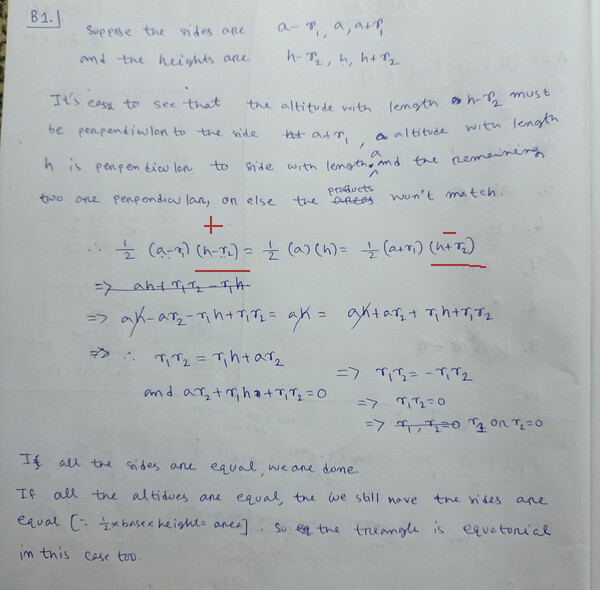 B1.
Suppose the sides are a-r₁, a, a+r₁
and the heights are h-r₂, h, h+r₂
It's easy to see that the altitude with length h-r₂ must
be perpendicular to the side a+r₁, altitude with length
h is perpendicular to side with length a and the remaining
two are perpendicular, or else the products won't match.
+ -
∴ 1/2 (a-r₁) (h-r₂) = 1/2 (a) (h) = 1/2 (a+r₁) (h+r₂)
=> ah + r₁r₂ - r₁h
=> ah - ar₂ - r₁h + r₁r₂ = ah = ah + ar₂ + r₁h + r₁r₂
=> ∴ r₁r₂ = r₁h + ar₂
=> r₁r₂ = -r₁r₂
and ar₂ + r₁h + r₁r₂ = 0
=> r₁r₂ = 0
=> r₁, r₂ = 0 r₁ or r₂ = 0
If all the sides are equal, we are done.
If all the altidues are equal, the we still have the sides are
equal [∵ 1/2 × base × height = area]. So the treangle is equatorial
in this case too.